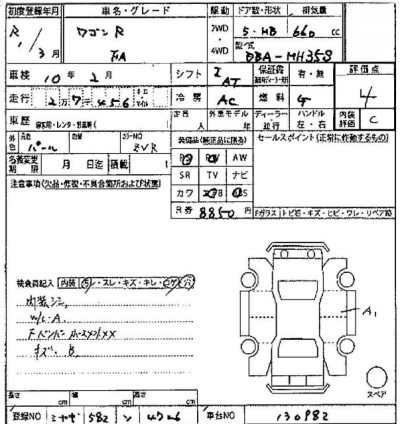 初度登録年月 車名・グレード 駆動 ドア数・形状 排気量
R1/3月 ワゴンR FA 2WD・4WD 5・HB 660 cc
型式 DBA-MH35S
車検 10年2月 シフト I AT 保証書 有・無 評価点
走行 2万7456 キロ マイル 冷房 AC 燃料 G 4
車歴 自家用・レンタ・ 定員 人 外車モデル 年 ディーラー・並行 ハンドル 左・右 内装評価 C
外色 元色 パール 色替 カラーNO ZVR 装備品(純正品に限る) セールスポイント(正常に作動するもの)
名義変更期限 月 日迄 積載 t PS PW AW
注意事項(欠品・修復・不具合箇所および状態) SR TV ナビ
カワ エアB ABS
R券 8850円
Fガラス トビ石・キズ・ヒビ・ワレ・リペア跡
検査員記入 内装 ・スレ・キズ・キレ・コゲ・穴
内装シミ
W/L-A
キズ、B
A1
スペア
長さ cm 幅 cm 高さ cm
登録NO ミヤギ 582 車台NO 130982